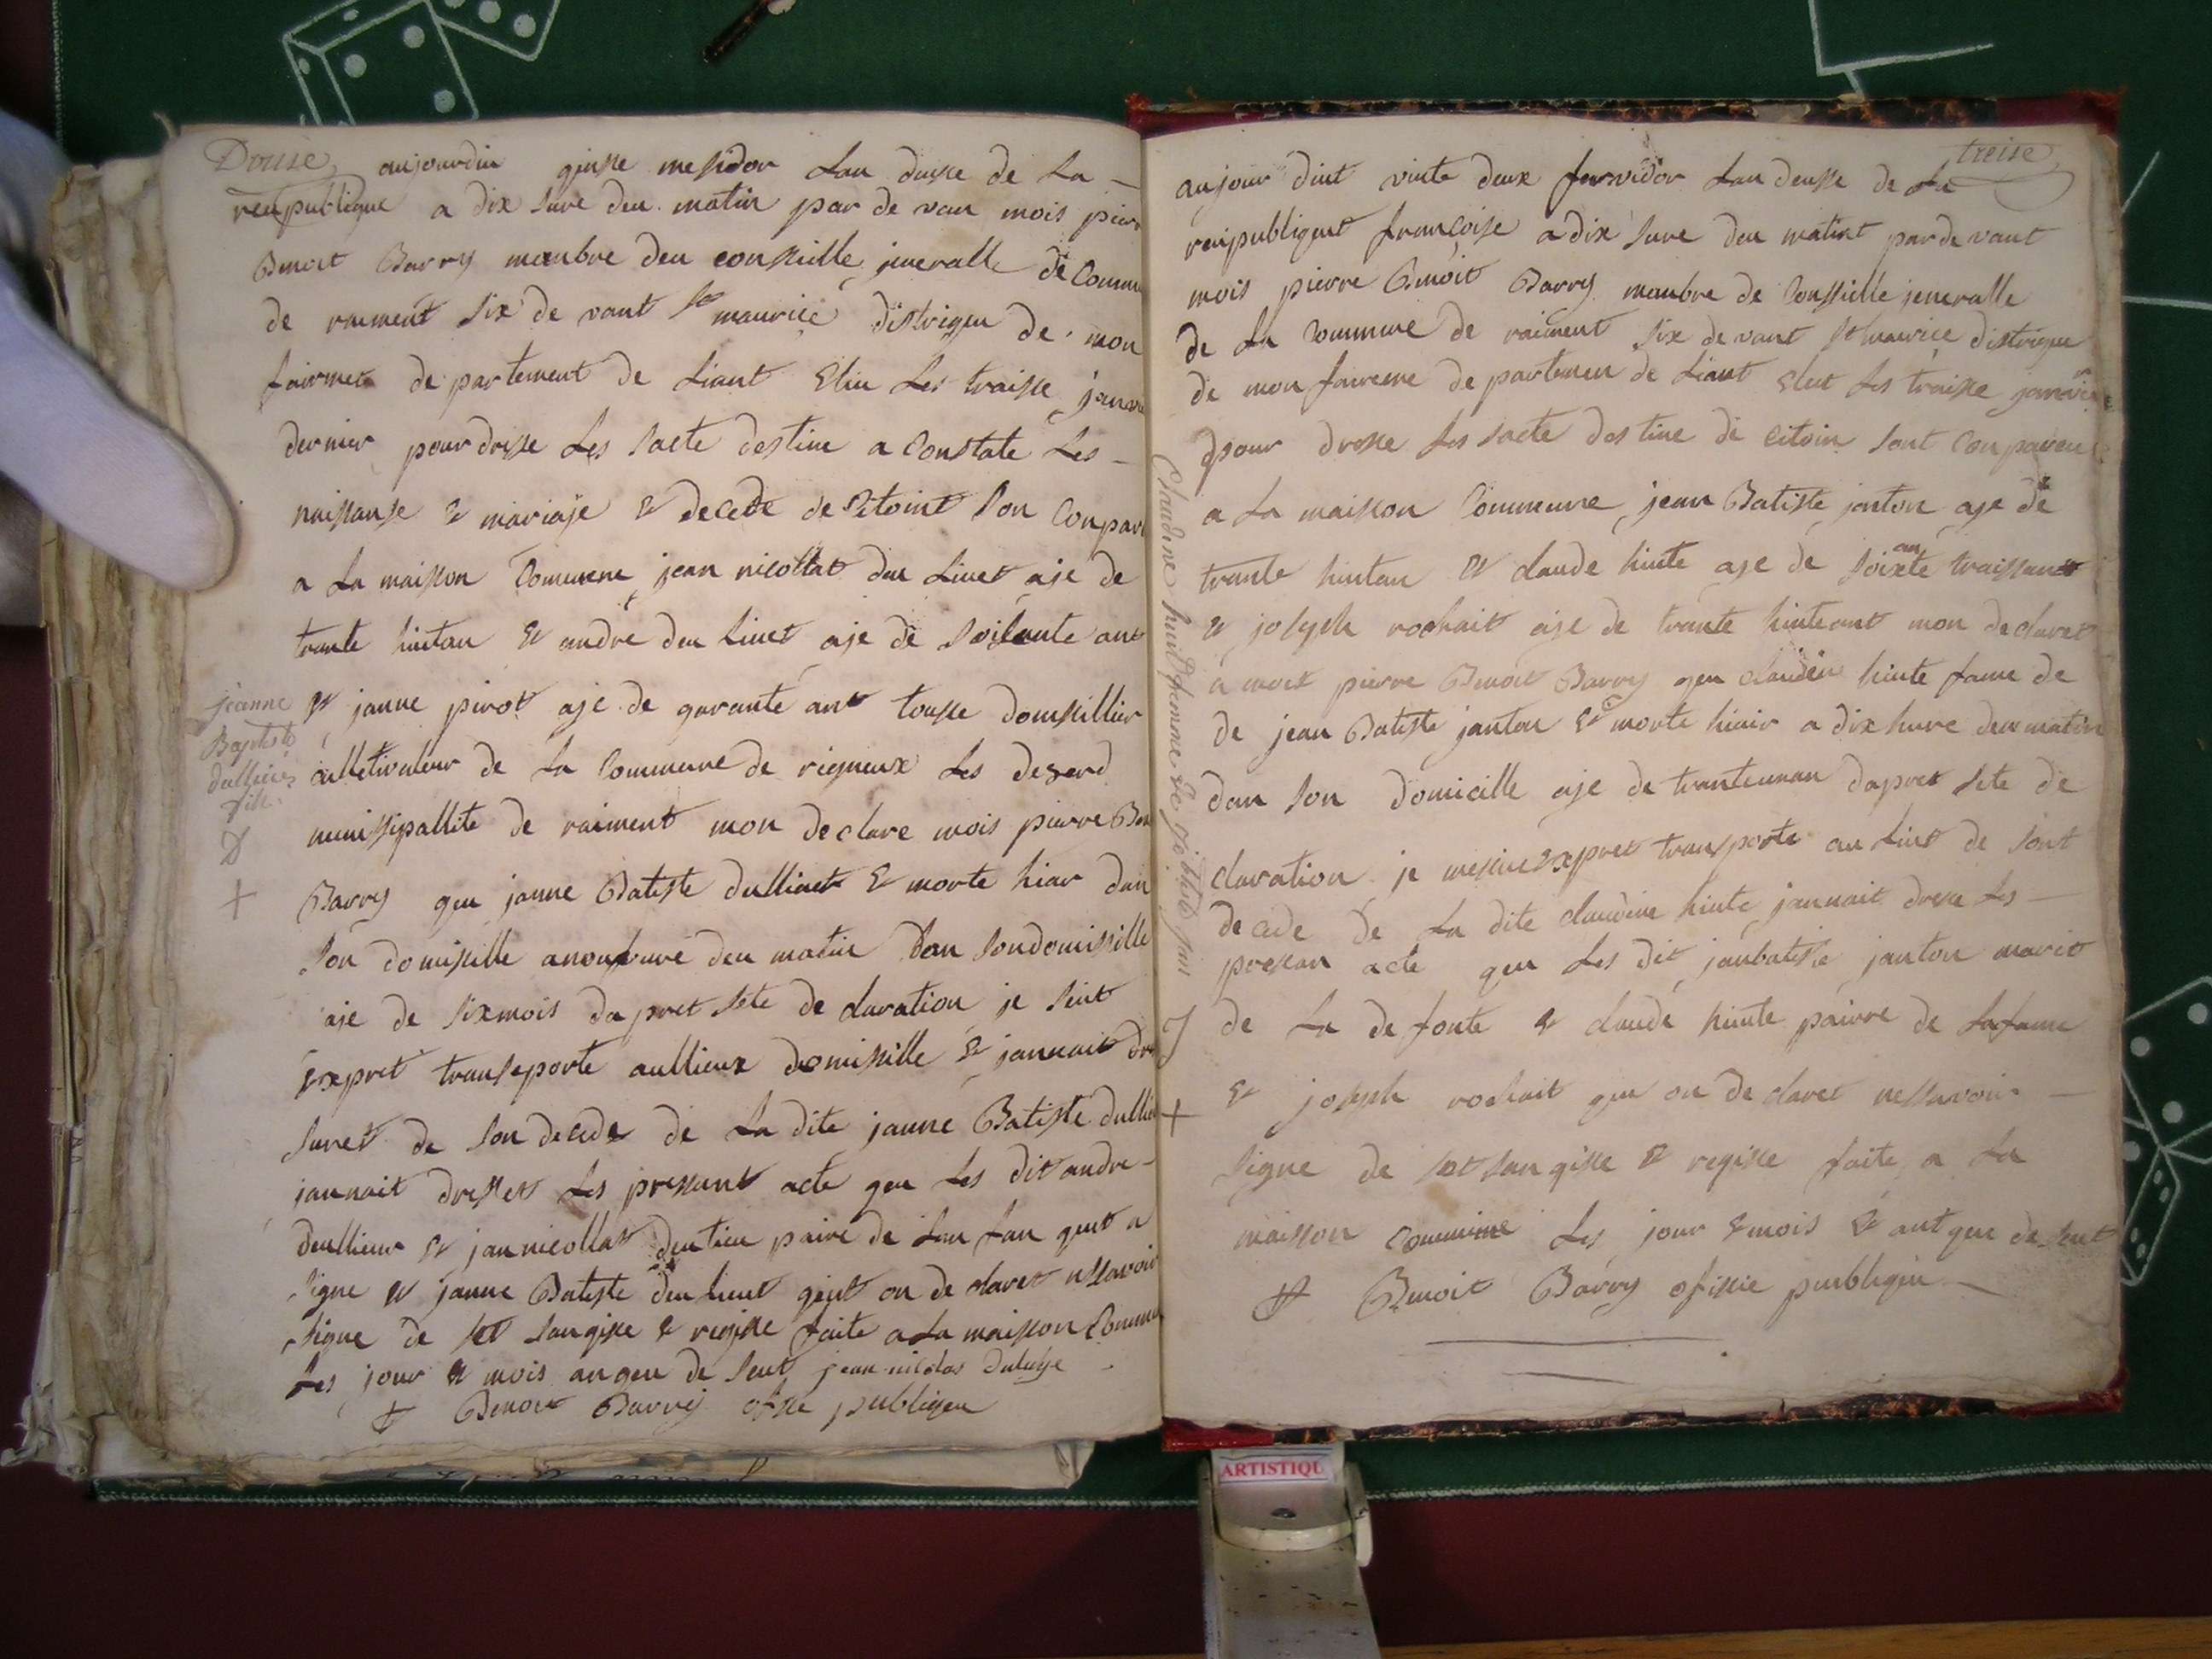 Douse aujourdui quisse messidor Lan dusse de La -
reupublique a dix lure deu matin par de van mois pier
Benoit Barry manbre deu conssille jeneralle de Commu
de raiment six de vant st maurice distrique de mon
fairmet de partement de Liant Eliu Les traisse janv
dernier pour drisse Les sacte destine a Constate Les -
naissanse et mariaje et decede de Citoint Son Conpar
a La maisson Commune jean nicollat du Liuet aje de
trante huitan et andre deu liuet aje de soisante ant
et janne pirot aje de qarante ant tousse domissillier
culletivateur de La Commune de rigneux Les deserd
munissipallite de raiment mon declare mois pierre Ben
Barry qeu janne Batiste dulliuet et morte hiar dan
son domisille a deu matin dan sondomissille
aje de sixmois dapret sete de claration je suit
Expret transeporte aullieux domissille et jannait dr
suret de son decede de La dite janne Batiste dulli
jannait dresset Les pressant acte qeu Les dit andre -
deullieur et jan nicollat paire de Lan fan qeut a
signe et janne Batiste deu lieut qeut on de claret nessavoir
signe de set sanqisse et reqisse faite a La maisson Commu
Les jour et mois anqeu de seut jean nicolas
Benoit Barry ofisie publiqeu
jeanne
Baptiste
dullieu
fille
D
+
treise
aujour duit vinte deux fervidor Lan deusse de La
reupubliqeut francoise a dix lure deu matint par de vant
mois pierre Benoit Barry manbre de Conssielle jeneralle
de La Commune de raiment six de vant st maurice distrique
de mon faireme de partemen de Liant eleut Les traisse janvie
pour drosse Les sacte destine de citoin sont Conpareu
a La maisson Commeune jean Batiste janton aje de
trante huitan et claude huite aje de soixante traissant
et joseph rochait aje de trante huiteant mon declaret
a mois pierre Benoit Barry qeu claudin huite fame de
de jean Batiste janton et morte hiair a dix hure deu matin
dan son domicille aje de tranteunan dapret sete de
claration je mesuie Expret transporte au Liut de sont
decede de La dite claudine huite jannait dresse Les -
pressan acte qeu Les dit janbatiste janton mariet
de La de fonte et claude huite paivre de Lafame
et joseph rochait qeu on de claret nessavoir -
signe de set san qisse et reqisse faite a La
maisson Commune Les jour et mois et ant qeu de seut
Benoit Barry ofisie publiqeu -
Claudine huit femme de jean
+